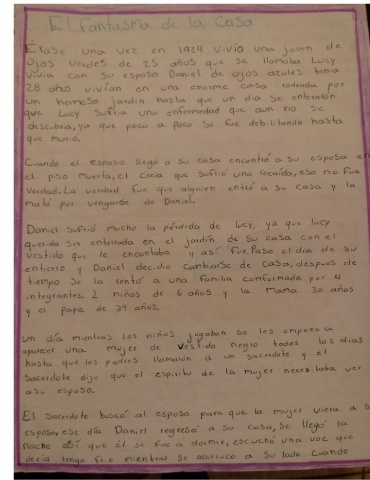 El fantasma de la Casa
Érase una vez en 1924 vivía una joven de
Ojos verdes de 25 años que se llamaba Lucy
vivia con su esposo Daniel de ojos azules tenia
28 años vivían en una enorme casa rodeada por
un hermoso jardin hasta que un dia se enteraron
que Lucy sufria una enfermedad que aun no se
descubria, ya que poco a poco se fue debilitando hasta
que murio.
Cuando el esposo llegó a su casa encontró a su esposa en
el piso muerta, el creia que sufrió una recaída, eso no fue
verdad. La verdad fue que alguien entró a su casa y la
mató por vengarse de Daniel.
Daniel sufrió mucho la pérdida de lucy, ya que lucy
queria ser enterrada en el jardín de su casa con el
vestido que le encantaba y así fue. Paso el dia de su
entierro y Daniel decidio cambiarse de casa, después de
tiempo se la rentó a una familia conformada por 4
integrantes 2 niños de 6 años y la mama 30 años
y el papa de 34 años.
un día mientras los niños jugaban se les empezo a
aparecer una mujer de vestido negro todos los dias
hasta que los padres llamaron a un sacerdote y el
Sacerdote dijo que el espiritu de la mujer necesitaba ver
a su esposo.
El sacerdote buscó al esposo para que la mujer viera a s
esposo, ese día Daniel regresó a su casa, se llegó la
noche así que él se fue a dormir, escuchó una voz que
decia tengo frio mientras se acurruco a su lado cuando